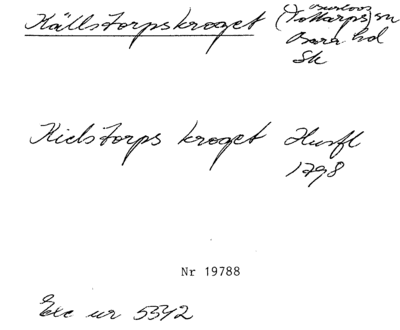 Källstorpskroget (Tottarps) sn
Burlövs
Bara hd
Sk
Kielstorps kroget Husfl
1798
Nr 19788
Exc ur 5342